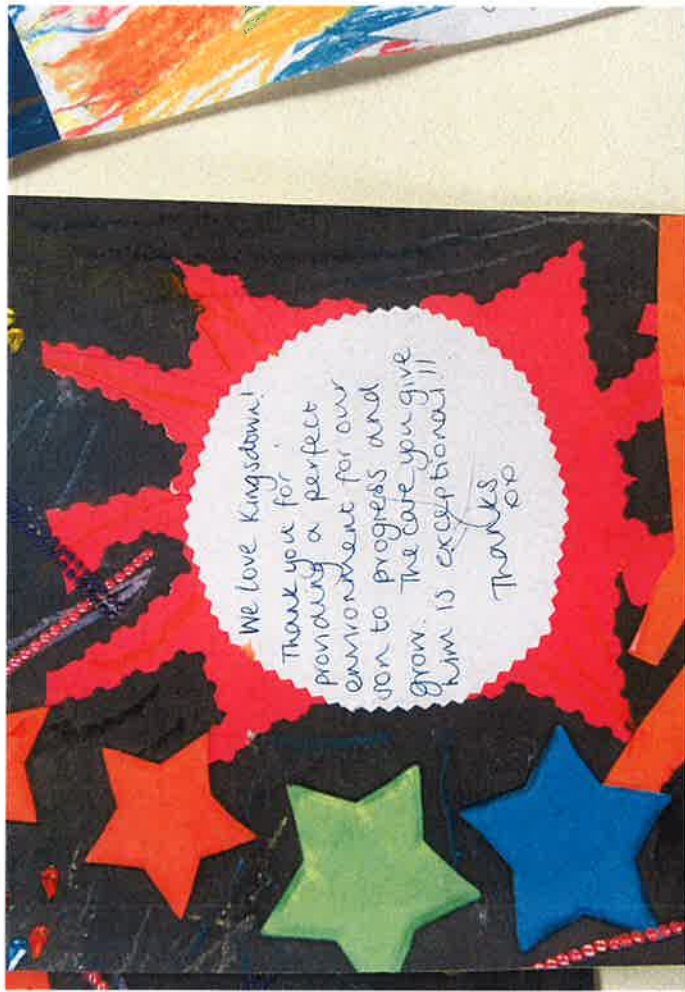 We Love Kingsdown!
Thank you for
providing a perfect
environment for our
son to progress and
grow. The care you give
him is exceptional!!
Thanks
xx